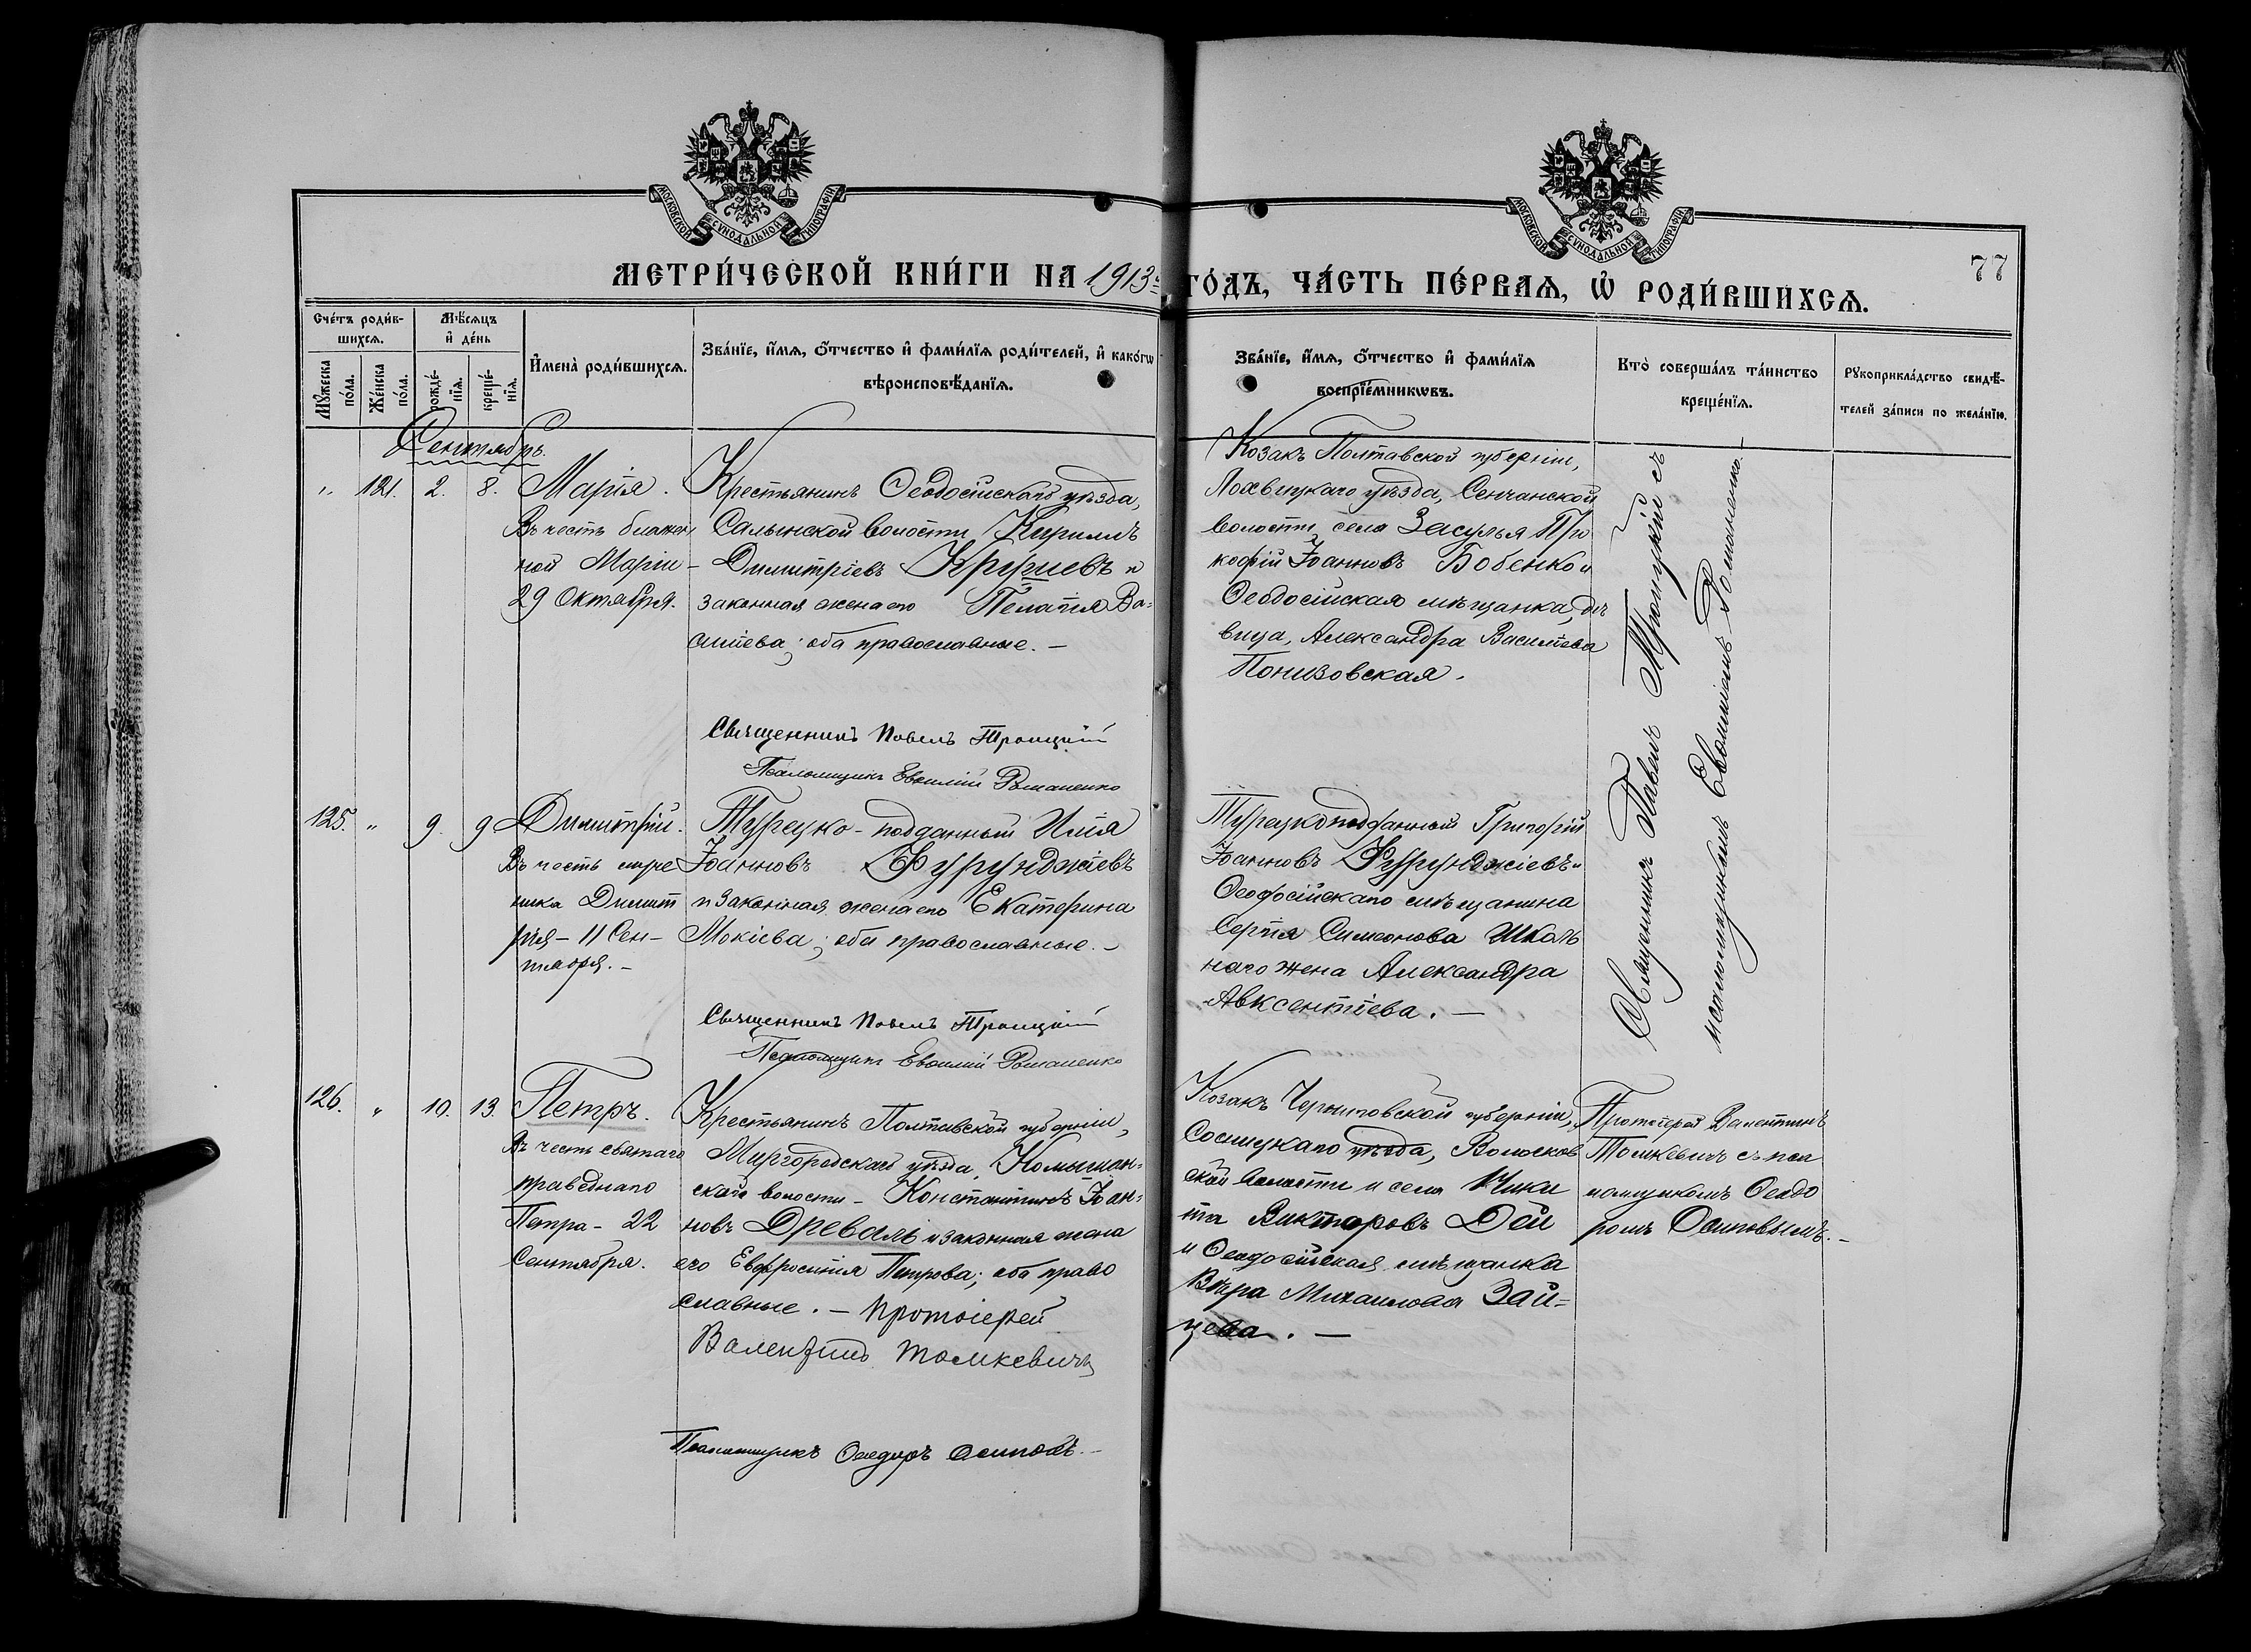 МОСКОВСКОЙ СѴНОДАЛЬНОЙ ТИПОГРАФІИ
МОСКОВСКОЙ СѴНОДАЛЬНОЙ ТИПОГРАФІИ
77
МЕТРИ́ЧЕСКОЙ КНИ́ГИ НА 1913 ГО́ДЪ, ЧА́СТЬ ПЕ́РВАѦ, Ѡ҆ РОДИ́ВШИХСѦ.
Сче́тъ роди́в-
шихсѧ.
Мѣ́сѧцъ
и҆ де́нь
Мꙋ́жеска
по́ла.
Же́нска
по́ла.
рожде́-
нїѧ.
креще́-
нїѧ.
И҆мена̀ роди́вшихсѧ.
Зва́нїе, и҆́мѧ, ѻ҆́тчество и҆ фами́лїѧ роди́телей, и҆ како́гѡ
вѣроисповѣ́данїѧ.
Зва́нїе, и҆́мѧ, ѻ҆́тчество и҆ фами́лїѧ
воспрїе́мникѡвъ.
Кто̀ соверша́лъ та́инство
креще́нїѧ.
Рꙋкоприкла́дство свидѣ́-
телей за́писи по жела́нїю.
Сентябрь.
„ 121. 2. 8.
Марія.
Въ честь блажен
ной Маріи -
29 Октября.
Крестьянинъ Ѳеодосійскаго уѣзда,
Салынской волости Кириллъ
Димитріевъ и
законная жена его Пелагія Ва-
сильева; оба православные. —
Священникъ Павелъ Троицкій
Псаломщикъ Евѳимій Романенко
Козакъ Полтавской губерніи,
Лохвицкаго уѣзда, Сенчанской
волости, села Засулья Про
кофій Іоанновъ Бобенко и
Ѳеодосійская мѣщанка, дѣ
вица, Александра Васильева
Понизовская.
Священникъ Павелъ Троицкій съ
псаломщикомъ Евѳиміемъ Романенко. —
125. „ 9. 9
Димитрій.
Въ честь
ника Димит
рія - 11 Сен-
тября. -
Турецко-подданный Илія
Іоанновъ Фурунджіевъ
и законная жена его Екатерина
Мокіева; оба православные. -
Священникъ Павелъ Троицкій
Псаломщикъ Евѳимій Романенко
Турецкоподданный Григорій
Іоанновъ Фурунджіевъ и
Ѳеодосійскаго мѣщанина
Сергія Симеонова Школь
наго жена Александра
Авксентіева. —
126. „ 10. 13.
Петръ.
Въ честь святаго
праведнаго
Петра - 22
Сентября.
Крестьянинъ Полтавской губерніи,
Миргородскаго уѣзда, Комышан-
ской волости - Константинъ Іоан-
новъ Древаль и законная жена
его Евфросинія Петрова; оба право
славные. - Протоіерей
Валентинъ Томкевичъ
Псаломщикъ Ѳеодоръ Осиповъ. -
Козакъ Черниговской губерніи,
Сосницкаго уѣзда, Волосков
ской волости и села Ники
та Викторовъ Дей
и Ѳеодосійская мѣщанка
Вѣра Михаилова Зай=
цева. —
Протоіерей Валентинъ
Томкевичъ съ пса
ломщикомъ Ѳеодо
ромъ Осиповымъ. -